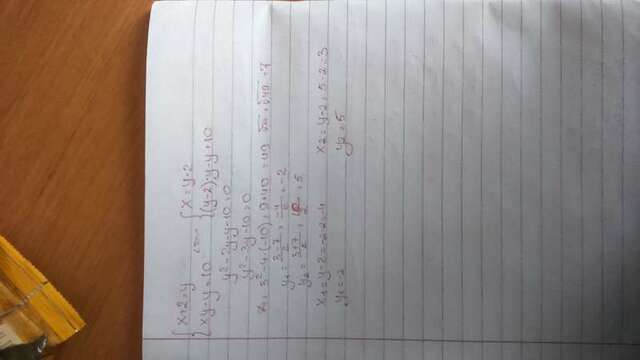 { x+2=y <=> { x=y-2
{ xy-y=10 { (y-2)·y-y=10
y²-2y-y-10=0
y²-3y-10=0
3²-4·(-10)=9+40=49 √49=7
y₁=(3-7)/2=-4/2=-2
y₂=(3+7)/2=10/2=5
x₁=y-2=-2-2=-4 x₂=y-2=5-2=3
y₁=-2 y₂=5